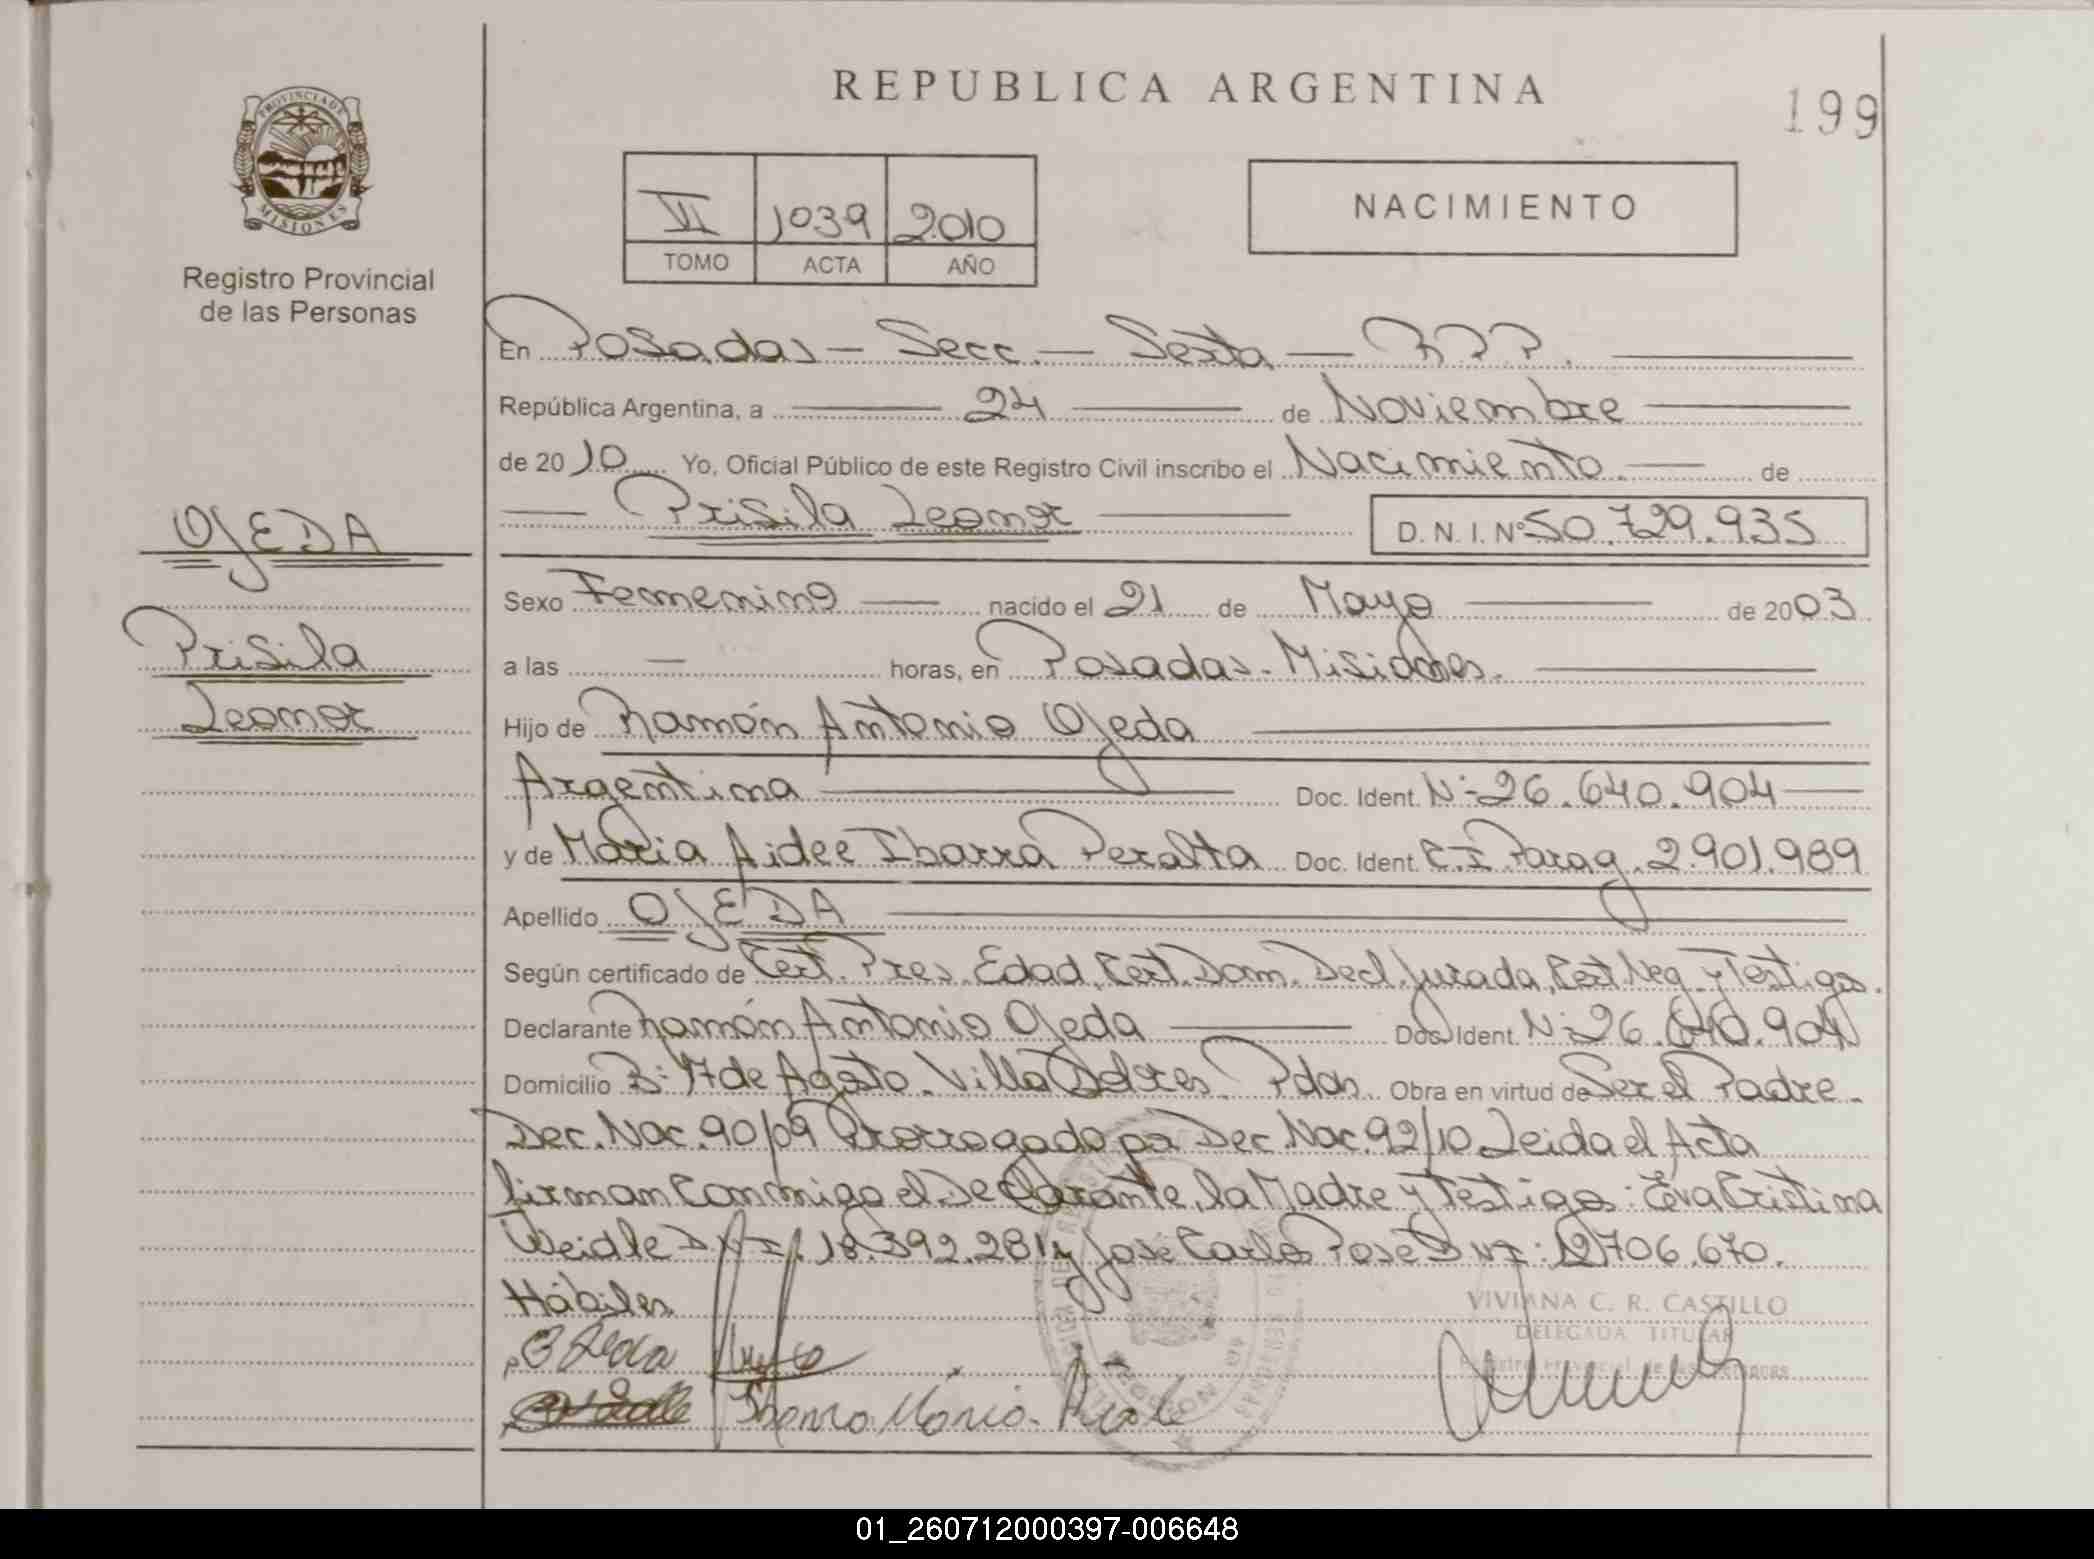 REPUBLICA ARGENTINA
199
PROVINCIA DE
MISIONES
Registro Provincial
de las Personas
VI 1039 2010
TOMO ACTA AÑO
NACIMIENTO
En Posadas - Secc. - Sexta - R.P.P.
República Argentina, a 24 de Noviembre
de 2010 Yo, Oficial Público de este Registro Civil inscribo el Nacimiento de
Prisila Leonor D.N.I. Nº 50.729.935
OJEDA
Prisila
Leonor
Sexo Femenino nacido el 21 de Mayo de 2003
a las — horas, en Posadas - Misiones.
Hijo de Ramón Antonio Ojeda
Argentina Doc. Ident. Nº 26.640.904
y de Maria Aidee Ibarra Peralta Doc. Ident. C.I Parag. 2.901.989
Apellido OJEDA
Según certificado de Cert. Pres. Edad, Cert. Dom. Decl. Jurada, Cert Neg. y Testigos.
Declarante Ramón Antonio Ojeda Doc. Ident. Nº 26.640.904
Domicilio Bº 17 de Agosto. Villa Dolores. Pdas. Obra en virtud de Ser el Padre.
Dec. Nac. 90/09 Prorrogado por Dec. Nac. 92/10 Leida el Acta
firman Conmigo el Declarante, la Madre y Testigos: Eva Cristina
Weidle D.N.I. 18.392.281 y José Carlos Pose D.N.I: 12.706.670.
Hábiles
VIVIANA C. R. CASTILLO
DELEGADA TITULAR
Registro Provincial de las Personas
Ojeda
Ibarra María
01_260712000397-006648